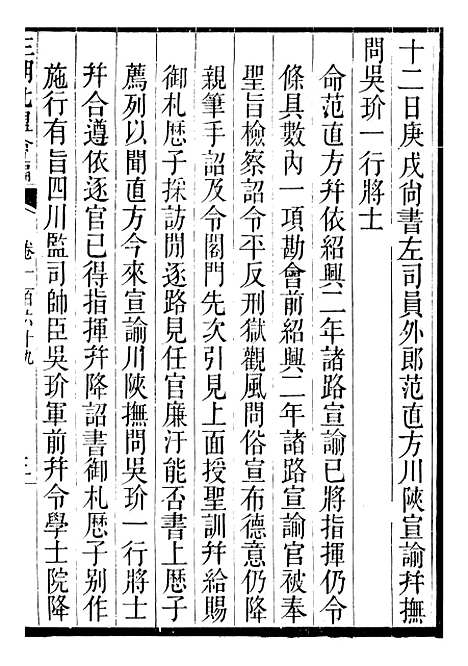 十二日庚戌尙書左司員外郎范直方川陝宣諭幷撫
問吳玠一行將士
命范直方幷依紹興二年諸路宣諭已將指揮仍令
條具數內一項勘會前紹興二年諸路宣諭官被奉
聖旨檢察詔令平反刑獄觀風問俗宣布德意仍降
親筆手詔及令閤門先次引見上面授聖訓幷給賜
御札厯子採訪開逐路見任官廉汙能否書上厯子
薦列以聞直方今來宣諭川陝撫問吳玠一行將士
幷合遵依逐官已得指揮幷降詔書御札厯子别作
施行有旨四川監司帥臣吳玠軍前幷令學士院降
三朝北盟會編 卷一百六十九